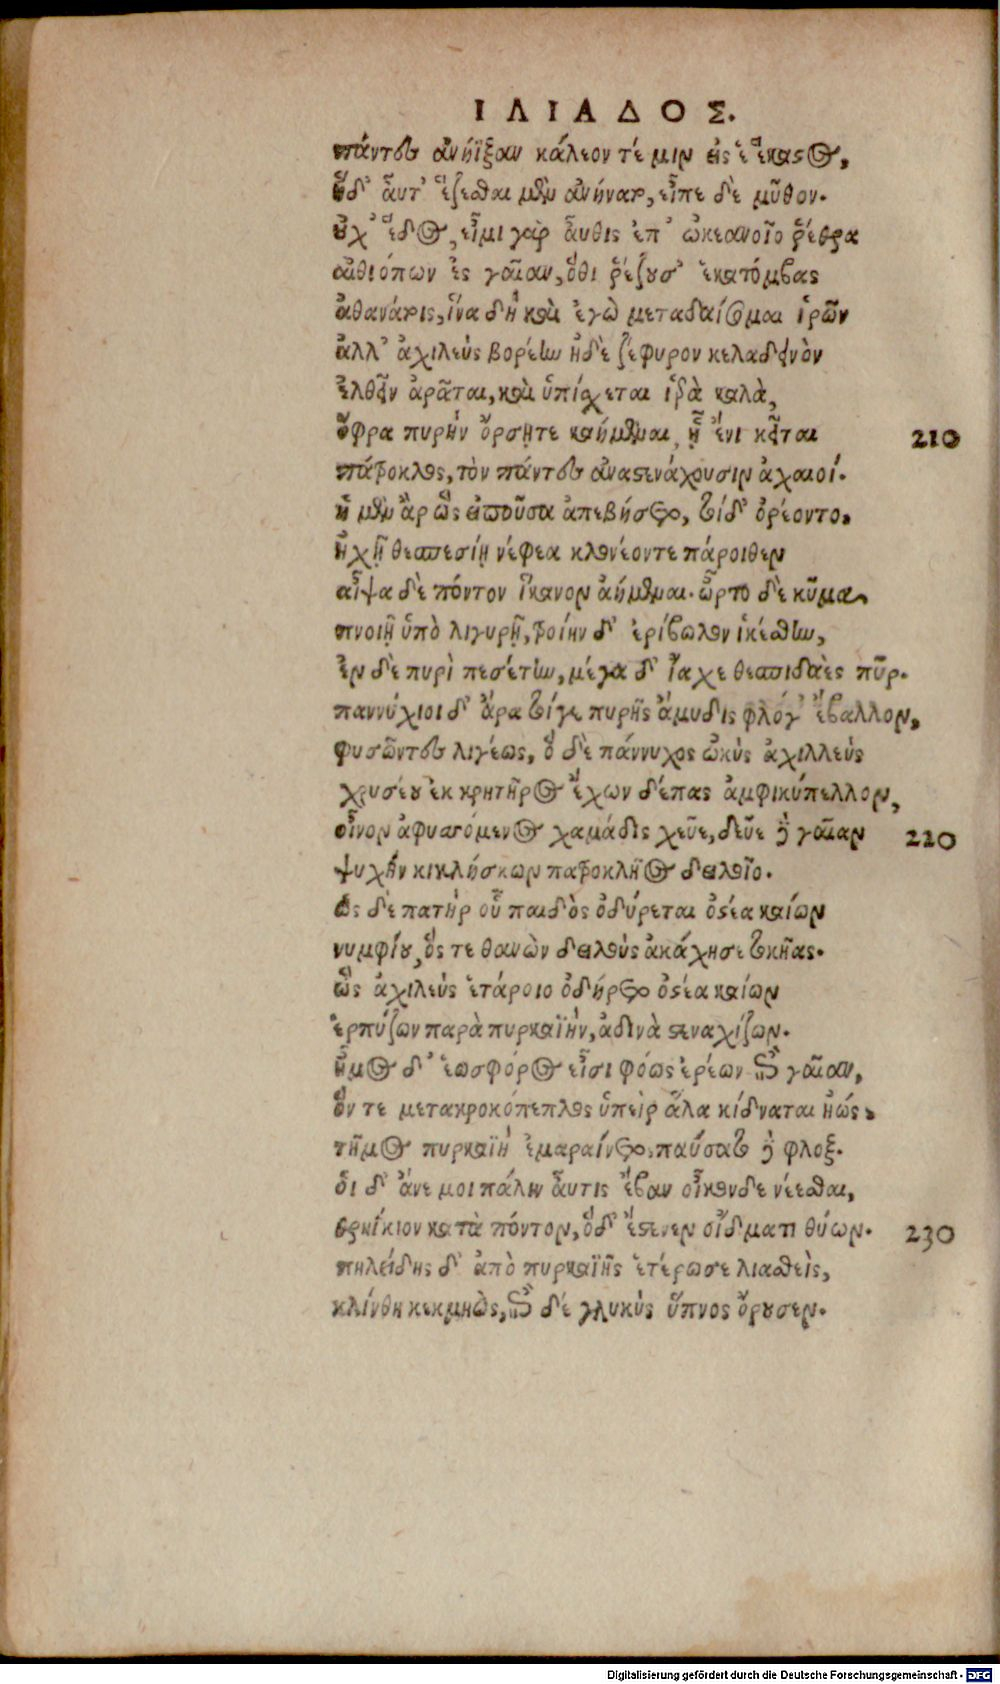 ΙΛΙΑΔΟΣ.
πάντες ἀνήϊξαν κάλεον τέ μιν εἰς ἓ ἕκαστος,
ἡ δ' αὖθ' ἕζεσθαι μὲν ἀνήνατο, εἶπε δὲ μῦθον.
οὐχ' ἕδος, εἶμι γὰρ αὖθις ἐπ' ὠκεανοῖο ῥέεθρα
αἰθιόπων ἐς γαῖαν, ὅθι ῥέζουσ' ἑκατόμβας
ἀθανάτοις, ἵνα δὴ καὶ ἐγὼ μεταδαίσομαι ἱρῶν
ἀλλ' ἀχιλεὺς βορέην ἠδὲ ζέφυρον κελαδεινὸν
ἐλθεῖν ἀρᾶται, καὶ ὑπίσχεται ἱερὰ καλὰ,
ὄφρα πυρὴν ὄρσητε καήμεναι, ᾗ ἔνι κεῖται 210
πάτροκλος, τὸν πάντες ἀναστενάχουσιν ἀχαιοί.
ἡ μὲν ἂρ ὣς εἰποῦσα ἀπεβήσετο, τοὶ δ' ὀρέοντο.
ἠχῇ θεσπεσίῃ νέφεα κλονέοντε πάροιθεν
αἶψα δὲ πόντον ἵκανον ἀήμεναι. ὦρτο δὲ κῦμα
πνοιῇ ὑπὸ λιγυρῇ, τροίην δ' ἐρίβωλον ἱκέσθην,
ἐν δὲ πυρὶ πεσέτην, μέγα δ' ἴαχε θεσπιδαὲς πῦρ.
παννύχιοι δ' ἄρα τοίγε πυρῆς ἄμυδις φλόγ' ἔβαλλον,
φυσῶντες λιγέως, ὁ δὲ πάννυχος ὠκὺς ἀχιλλεὺς
χρυσέου ἐκ κρητῆρος ἔχων δέπας ἀμφικύπελλον,
οἶνον ἀφυσσόμενος χαμάδις χεῦε, δεῦε δὲ γαῖαν 220
ψυχὴν κικλήσκων πατροκλῆϊος δειλοῖο.
ὡς δὲ πατὴρ οὗ παιδὸς ὀδύρεται ὀστέα καίων
νυμφίου, ὅς τε θανὼν δειλοὺς ἀκάχησε τοκῆας.
ὣς ἀχιλεὺς ἑτάροιο ὀδήρετο ὀστέα καίων
ἑρπύζων παρὰ πυρκαϊὴν, ἁδινὰ στεναχίζων.
ἦμος δ' ἑωσφόρος εἶσι φόως ἐρέων ἐπὶ γαῖαν,
ὅν τε μετα κροκόπεπλος ὑπεὶρ ἅλα κίδναται ἠώς.
τῆμος πυρκαϊὴ ἐμαραίνετο. παύσατο δὲ φλοξ.
οἱ δ' ἄνεμοι πάλιν αὖτις ἔβαν οἶκονδε νέεσθαι,
θρηίκιον κατὰ πόντον, ὁ δ' ἔστενεν οἴδματι θύων. 230
πηλείδης δ' ἀπὸ πυρκαϊῆς ἑτέρωσε λιασθεὶς,
κλίνθη κεκμηὼς, ἐπὶ δέ γλυκὺς ὕπνος ὄρουσεν.
Digitalisierung gefördert durch die Deutsche Forschungsgemeinschaft - DFG